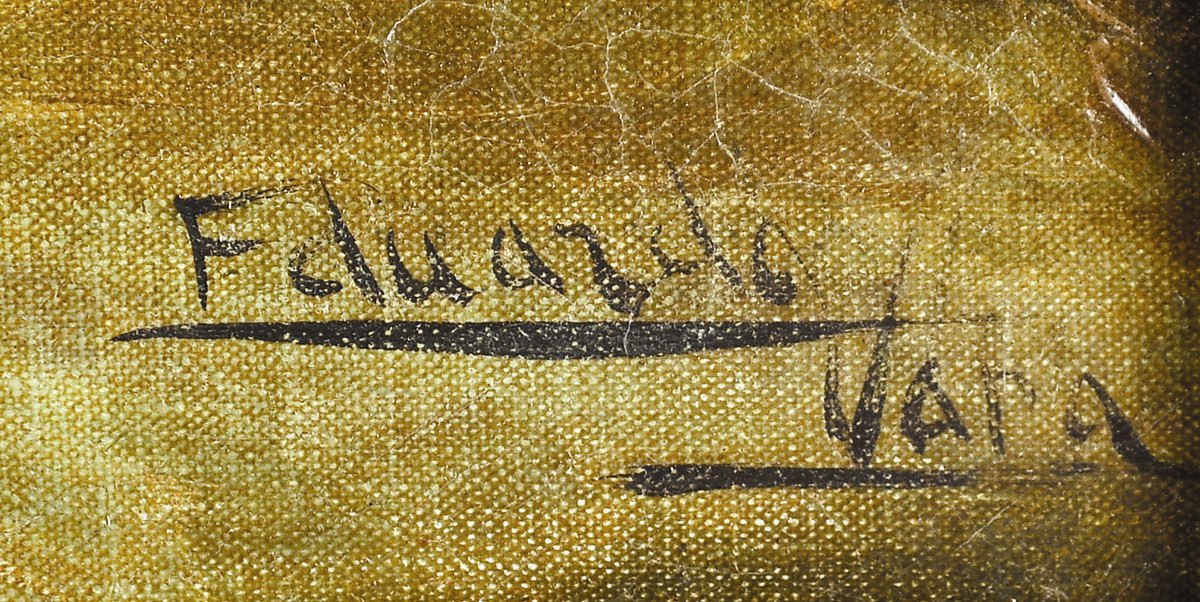 Eduardo
Vara